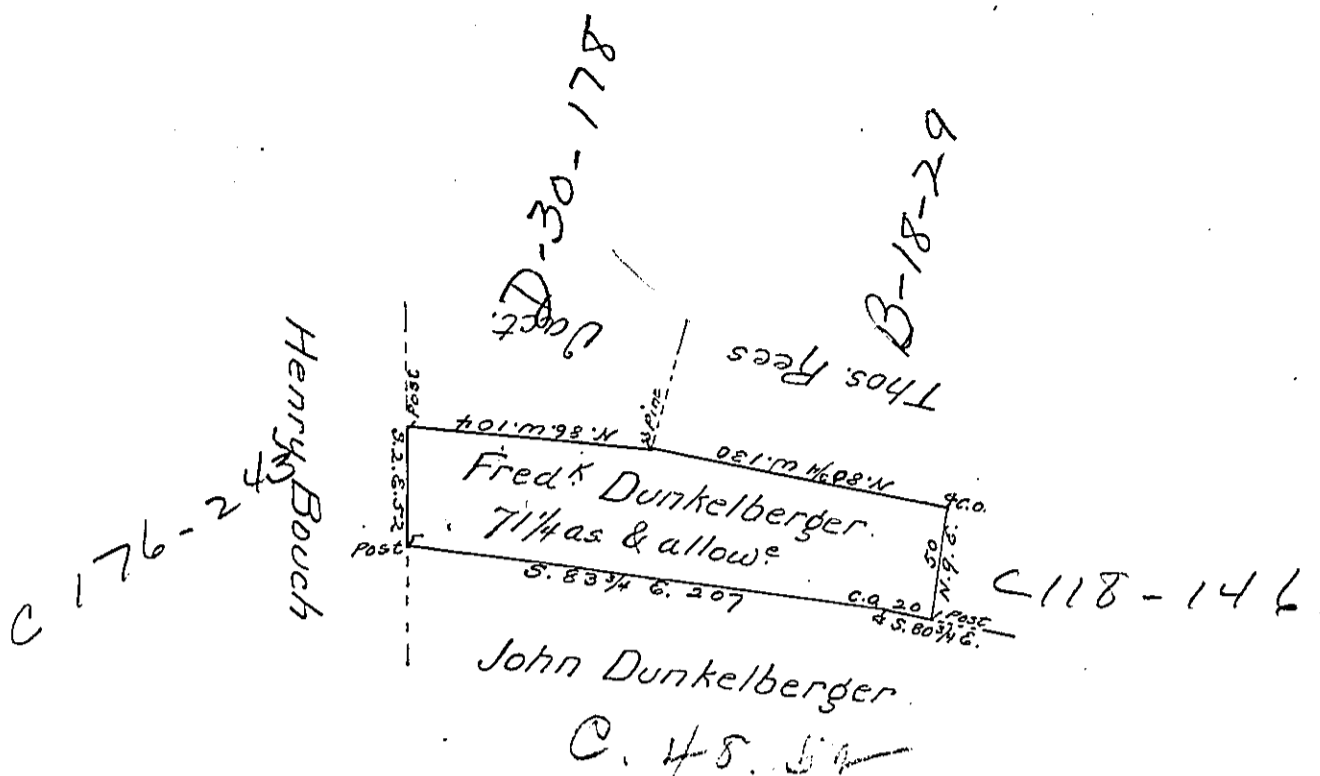 D-30-178
B-18-29
Vact.
Thos. Rees
Henry Bouch
C 176-243
Post
N. 86. W. 104
Pine
N. 80 3/4 W. 130
C.O.
S. 2. E. 52
Fred.k Dunkelberger.
71 1/4 as & allow.e
50
N. 9. E.
Post
S. 83 3/4 E. 207
C.O. 20
S. 80 3/4 E.
Post
C118-146
John Dunkelberger
C. 48.